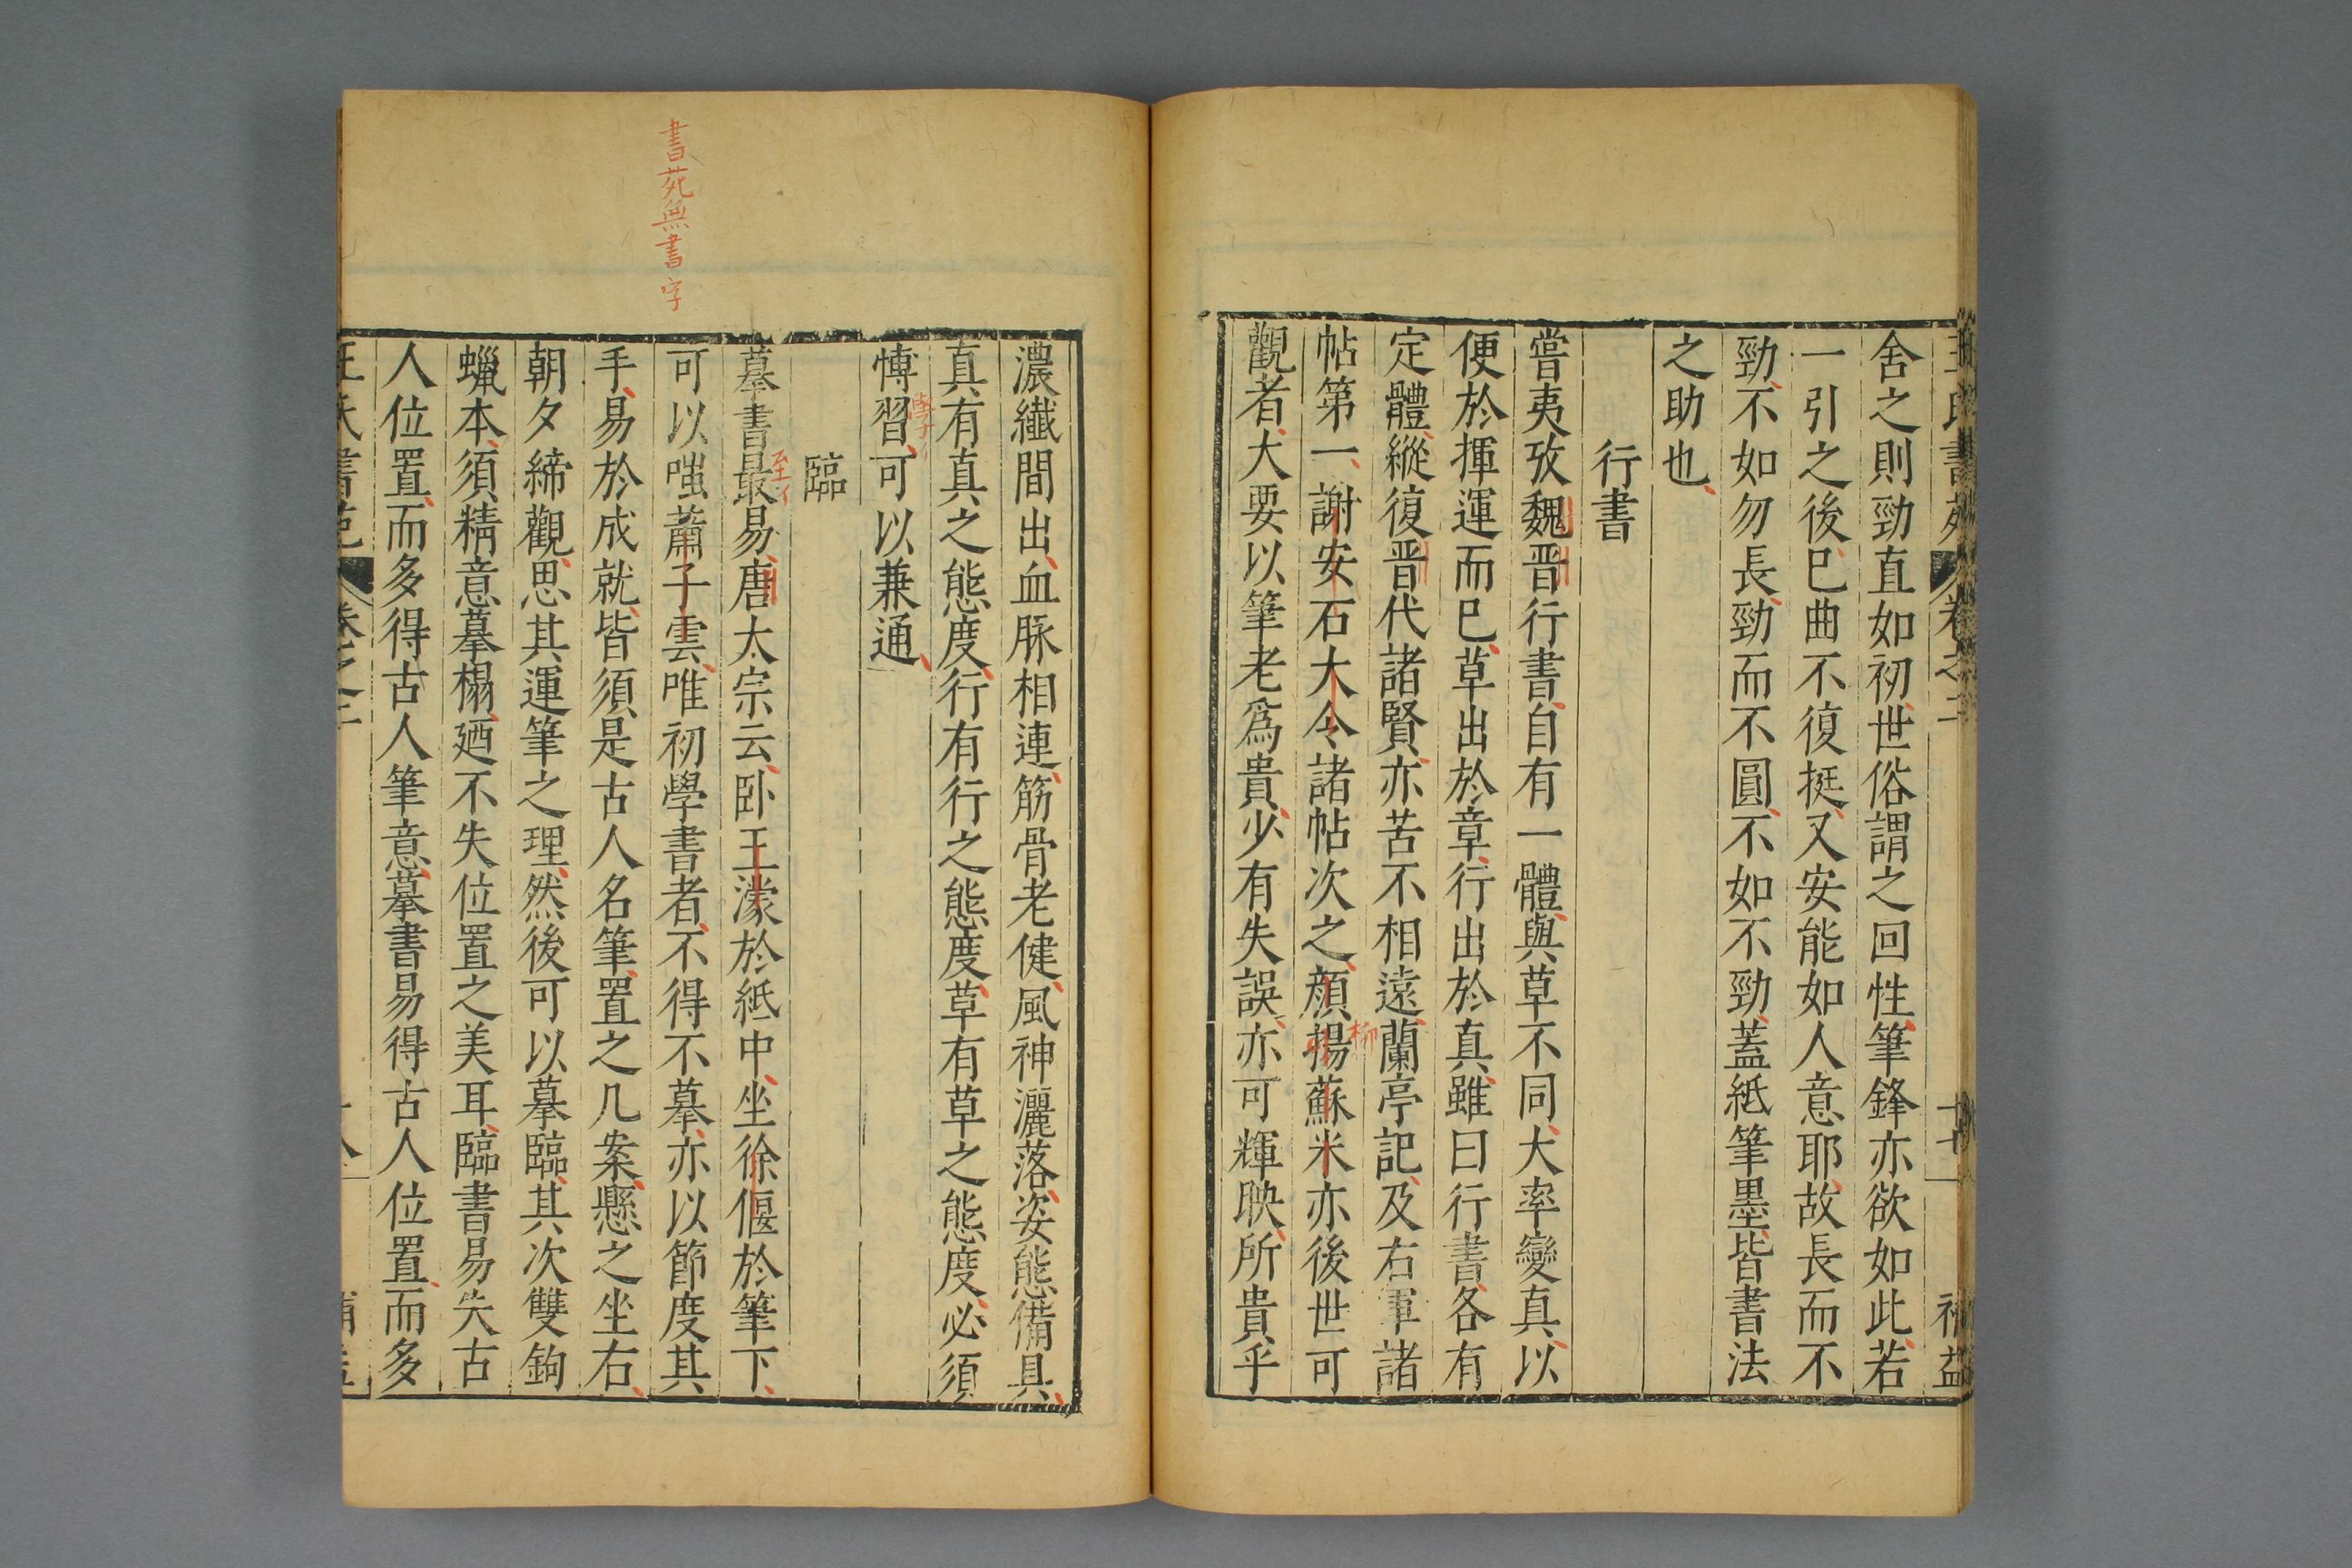 王氏書苑 卷之二 十七 補益
舍之則勁直如初世俗謂之回性筆鋒亦欲如此若
一引之後已曲不復挺又安能如人意耶故長而不
勁不如勿長勁而不圓不如不勁蓋紙筆墨皆書法
之助也
行書
嘗夷攷魏晋行書自有一體與草不同大率變真以
便於揮運而已草出於章行出於真雖曰行書各有
定體縱復晋代諸賢亦苦不相遠蘭亭記及右軍諸
帖第一謝安石大令諸帖次之顔揚蘇米亦後世可
柳
觀者大要以筆老爲貴少有失誤亦可輝映所貴乎
濃纖間出血脉相連筋骨老健風神灑落姿態備具
真有真之態度行有行之態度草有草之態度必須
慱習可以兼通
臨
摹書最易唐太宗云卧王濛於紙中坐徐偃於筆下
至
可以嗤蕭子雲唯初學書者不得不摹亦以節度其
書苑無書字
手易於成就皆須是古人名筆置之几案懸之坐右
朝夕締觀思其運筆之理然後可以摹臨其次雙鉤
蠟本須精意摹榻廼不失位置之美耳臨書易失古
人位置而多得古人筆意摹書易得古人位置而多
王氏書苑 卷之二 十八 補益